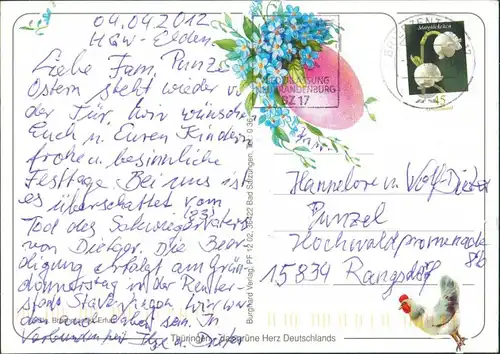 04.04.2012
HGW-Elden.
Liebe Fam. Punzel
Ostern steht wieder vor
der Tür, wir wünschen
Euch u. Euren Kindern
frohe u. besinnliche
Festtage. Bei uns ist
es überschattet vom
Tod des Schwiegervaters
(93)
von Dieter. Die Beer-
digung erfolgt am Grün-
donnerstag in der Reuter-
stadt Stavenhagen.
Verbundenheit
NIEDERLASSUNG
NEUBRANDENBURG
BZ 17
BRIEFZENTRUM 17
Maiglöckchen
45
Fam.
Hannelore u. Wolf-Dieter
Punzel
Hochwaldpromenade
8b
15834 Rangsdorf
Burghard Verlag, PF 12 02, 36422 Bad Salzungen
Thüringen - das grüne Herz Deutschlands